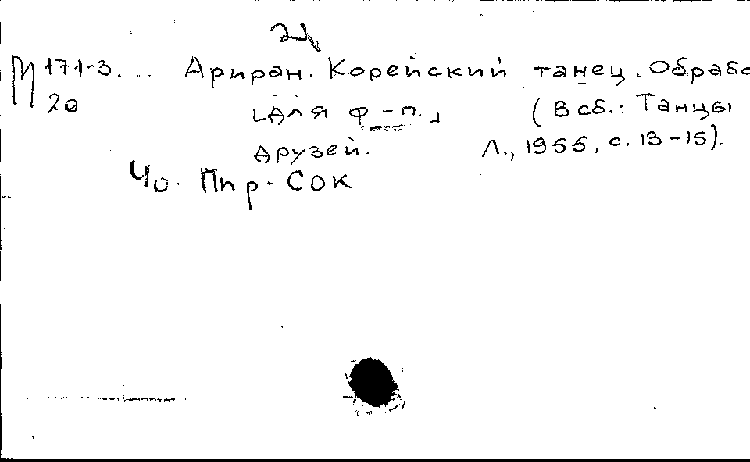 М 171-3 ... Ариран. Корейский танец. Обрабо
20 [для ф-п.] (В сб.: Танцы
друзей. Л., 1955, с. 13-15).
Чо. Пир-Сок